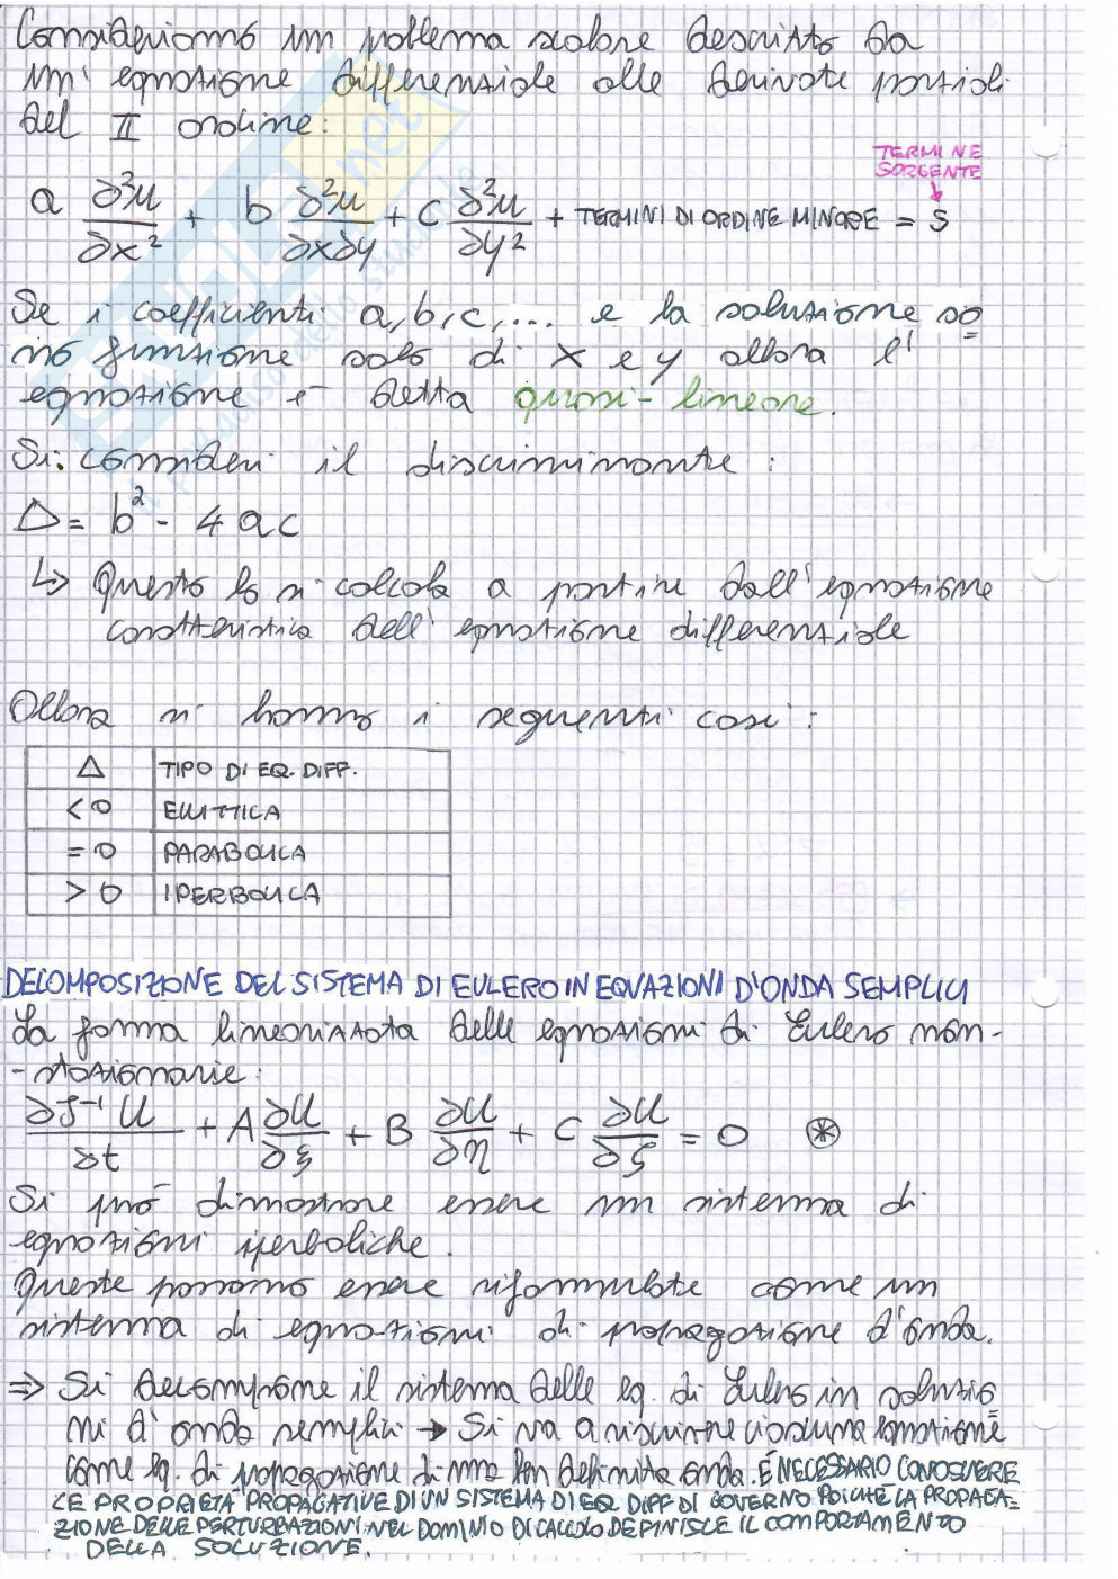 Consideriamo un problema scalare descritto da
un' equazione differenziale alle derivate parziali
del II ordine:
TERMINE
SORGENTE
a ∂²u/∂x² + b ∂²u/∂x∂y + c ∂²u/∂y² + TERMINI DI ORDINE MINORE = S
Se i coefficienti a, b, c, ... e la soluzione so
no funzione solo di x e y allora l'
equazione è detta quasi-lineare.
Si consideri il discriminante:
Δ = b² - 4ac
↳ Questo lo si calcola a partire dall'equazione
caratteristica dell'equazione differenziale
Allora si hanno i seguenti casi:
Δ TIPO DI EQ. DIFF.
< 0 ELLITTICA
= 0 PARABOLICA
> 0 IPERBOLICA
DECOMPOSIZIONE DEL SISTEMA DI EULERO IN EQUAZIONI D'ONDA SEMPLICI
La forma linearizzata delle equazioni di Eulero non-
-stazionarie:
∂J⁻¹U/∂t + A ∂U/∂ξ + B ∂U/∂η + C ∂U/∂ζ = 0 ⊛
Si può dimostrare essere un sistema di
equazioni iperboliche.
Queste possono essere riformulate come un
sistema di equazioni di propagazione d'onda.
⇒ Si decompone il sistema delle eq. di Eulero in soluzio
ni d'onda semplici → Si va a riscrivere ciascuna equazione
come eq. di propagazione di una ben definita onda. È NECESSARIO CONOSCERE
LE PROPRIETÀ PROPAGATIVE DI UN SISTEMA DI EQ. DIFF DI GOVERNO POICHÈ LA PROPAGA=
ZIONE DELLE PERTURBAZIONI NEL DOMINIO DI CALCOLO DEFINISCE IL COMPORTAMENTO
DELLA SOLUZIONE.